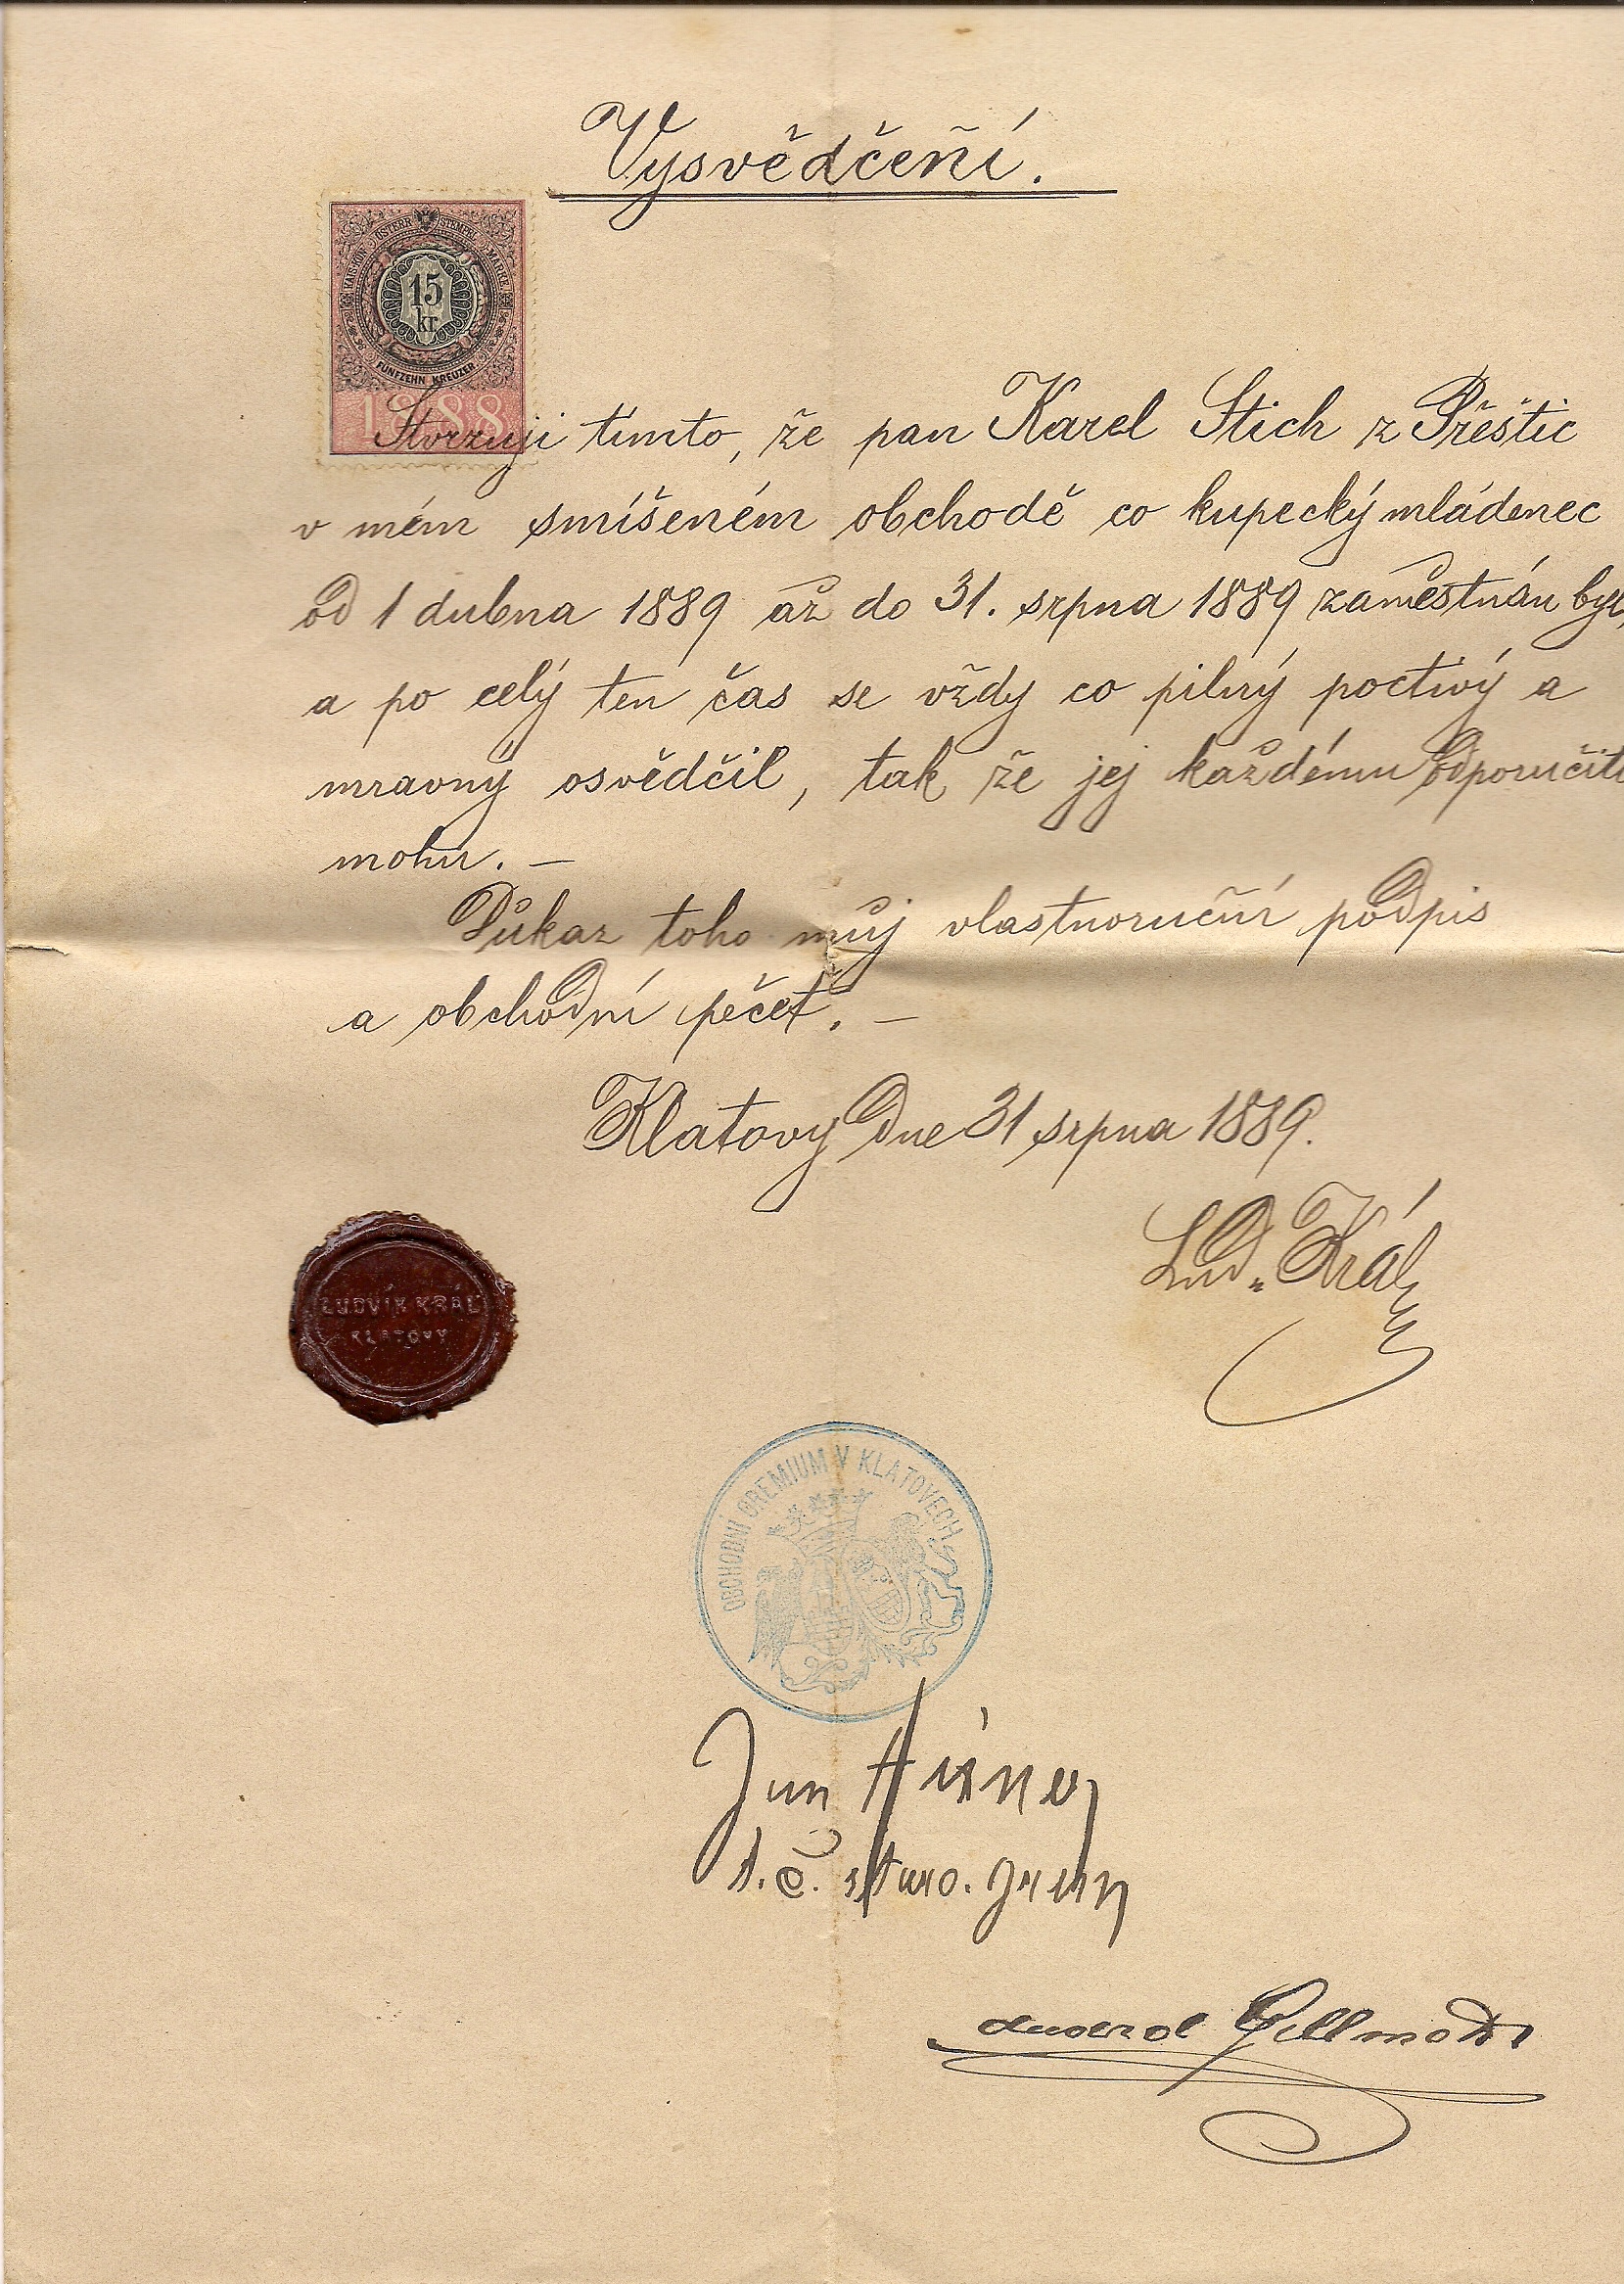 Vysvědčení.
KAIS. KÖN. ÖSTERR. STEMPEL MARKE
15
kr.
FÜNFZEHN KREUZER
1888
Stvrzuji tímto, že pan Karel Stich z Přeštic
v mém smíšeném obchodě co kupecký mládenec
od 1 dubna 1889 až do 31. srpna 1889 zaměstnán byl,
a po celý ten čas se vždy co pilný poctivý a
mravný osvědčil, tak že jej každému odporučiti
mohu. —
Důkaz toho můj vlastnoruční podpis
a obchodní pečeť. —
Klatovy dne 31 srpna 1889.
Lud. Král
LUDVÍK KRÁL
KLATOVY
OBCHODNÍ GREMIUM V KLATOVECH
Jan
t. č. staro.